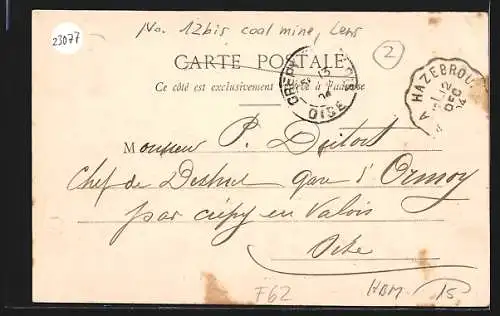 No. 12 bis coal mine, Lens
23077
2
CARTE POSTALE
Ce côté est exclusivement réservé à l'adresse
CRÉPY
OISE
13
04
A HAZEBROU
12
DEC
04
Monsieur P.
Chef de District gare d'Ormoy
par crépy en Valois
Oise
F62
HBM
15